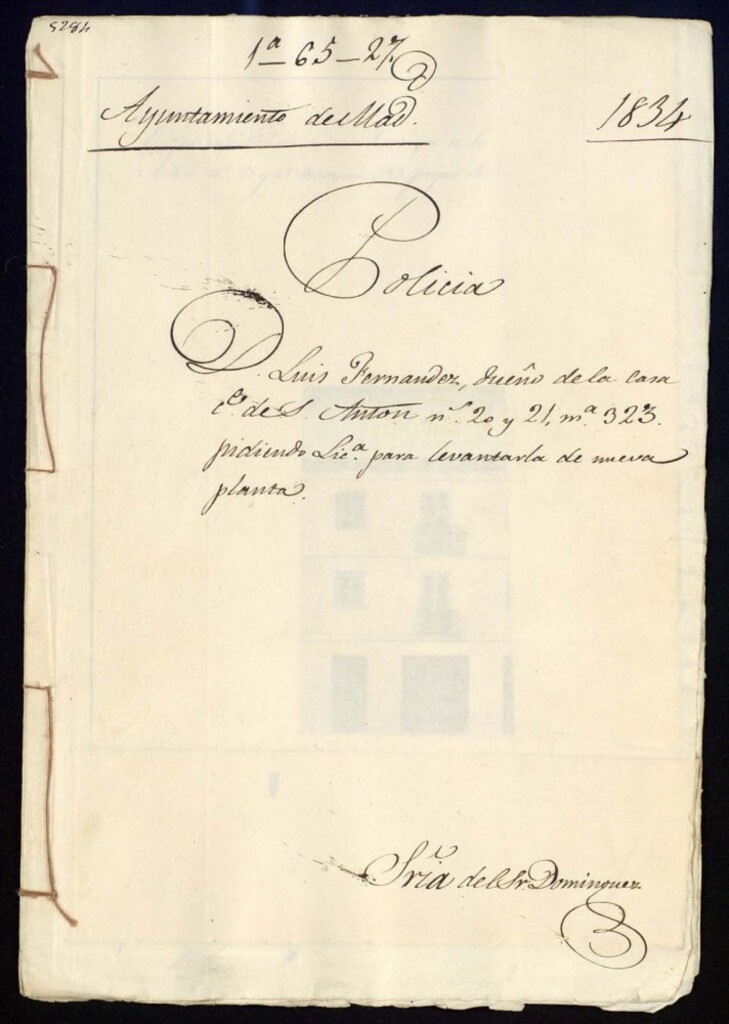 5284
1ª-65-27
Ayuntamiento de Mad.
1834
Policia
D. Luis Fernandez, dueño de la casa
ce. de S. Anton ns. 20 y 21, mª. 323.
pidiendo Lic.ª para levantarla de nueva
planta.
Sria del Sr. Dominguez